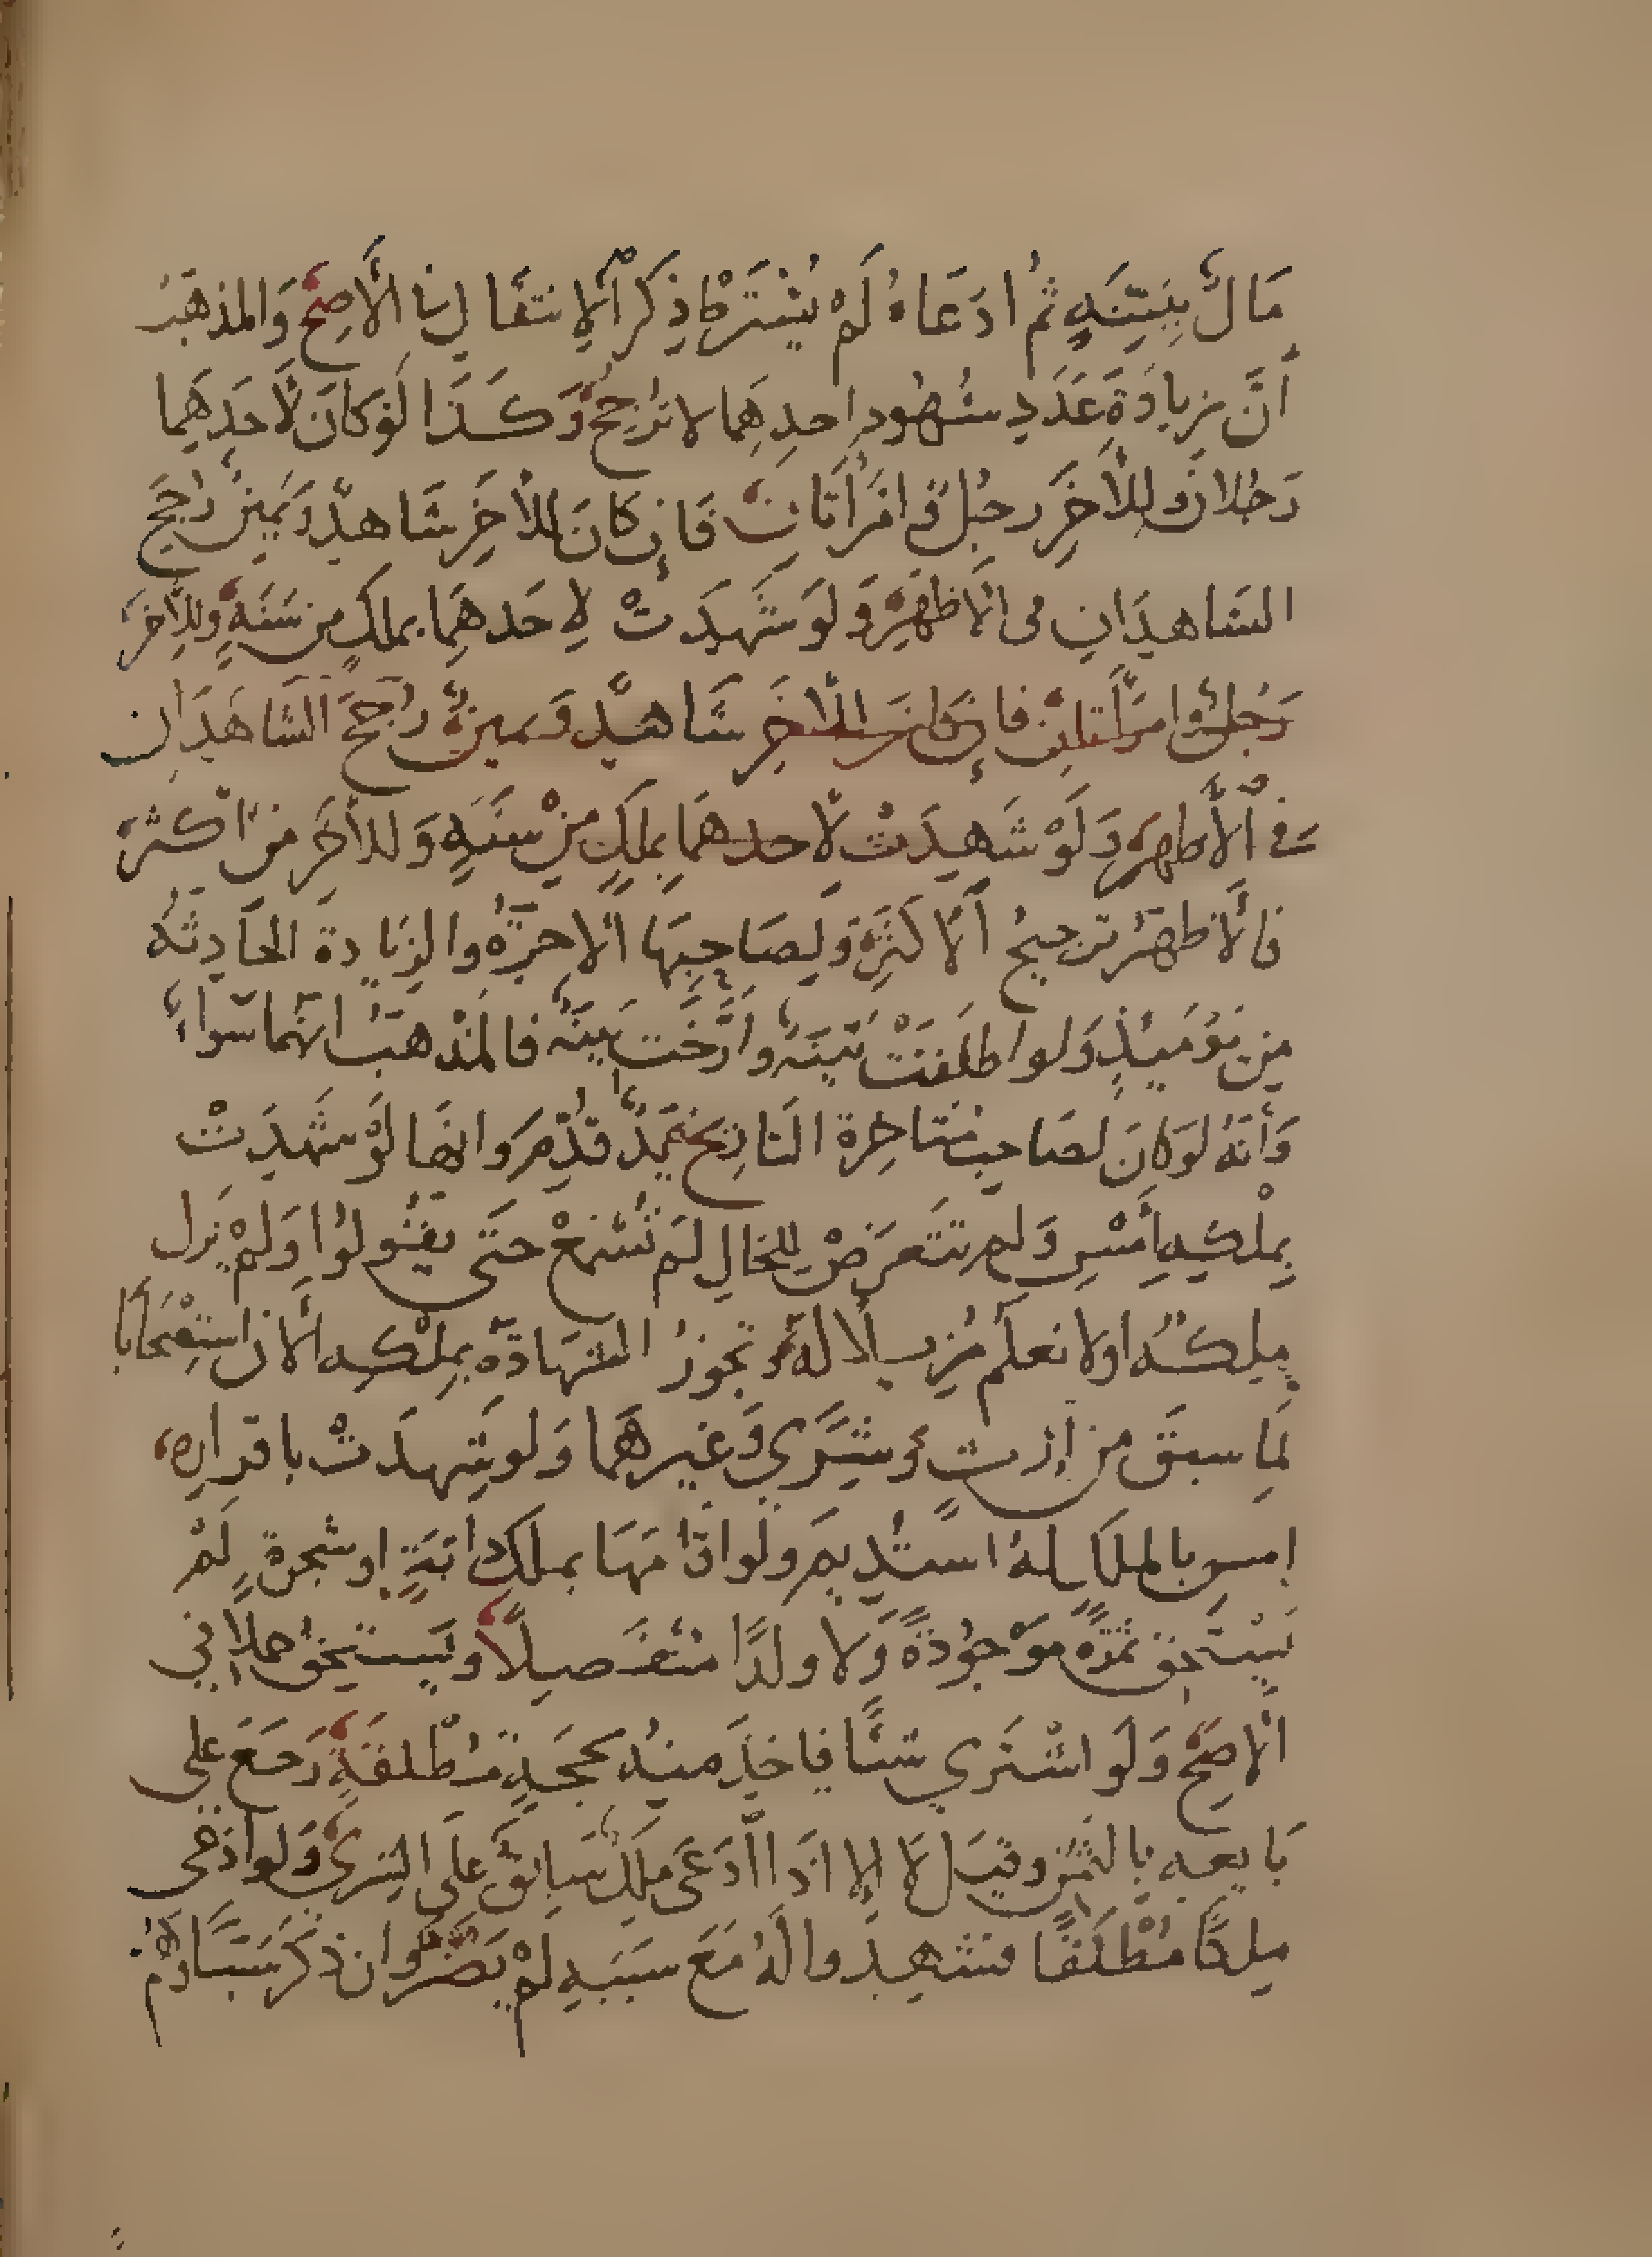 مَالٌ بِبَيِّنَةٍ ثُمَّ ادَعَاهُ لَمْ يُشْتَرَطْ ذِكْرُ الِانتقَالِ في الأَصِحِّ وَالمذهَبُ
أنَّ زيادَةَ عَدَدِ شُهُودِ احدِهِمَا لا تُرَجِّحُ وَكَذَا لَوْ كَانَ لأَحَدِهِمَا
رَجُلانِ وللأَخَرِ رجُلٌ وَامْرَأَتَانِ فَإن كَانَ للأخَرِ شَاهِدٌ وَيَمينٌ رُجِّحَ
الشَاهِدَانِ فى الأَظهَرِ وَلَوْ شَهِدَتْ لِاحَدهِمَا بملكٍ من سَنَةٍ وللأخَرِ
رَجُلٌ وامرأتين فان كانَ للأخَرِ شَاهِدٌ وَيمينٌ رُجِّحَ الشَاهدَان
في الأَظهرِ وَلَوْ شَهِدَتْ لأحدهمَا بِملكٍ مِنْ سَنَةٍ وَللأخَرِ مِنْ أكثَرَ
فالأَظهَرُ ترجيحُ الأَكثَرِ وَلِصَاحِبِهَا الاجرَةُ والزيادة الحَادِثَةُ
مِن يَوْمَئِذٍ وَلو اطلقَتْ بَيِّنَةٌ وارَّخَت بَيِّنَةٌ فالمَذْهَبُ انهما سَواءٌ
وَأنهُ لوْ كانَ لصَاحب مُتاخرة التاريخ يَدٌ قُدِّمَ وانهَا لَوْ شَهِدَتْ
بِمِلْكِهِ أَمْسِ وَلم تتَعرَضْ للحَالِ لَم تُسْمَعْ حتَى يقُولوُا وَلَمْ يَزل
مِلكُهُ اولا نعلَمُ مُزِيلًا لَهُ وَتجُوزُ الشهَادَةُ بِمِلْكِهِ الأن استِصْحَابًا
لِمَا سبقَ من إرثٍ وَشِرَىً وَغيرهمَا وَلو شهِدَتْ باقرارِهِ
امسِ بالملكِ لهُ استُدِيمَ ولو اقامَهَا بملكِ دابَّةٍ او شجَرَةٍ لَمْ
يَسْتَحِق ثمَرَةً موْجُوْدَةً وَلا ولدًا مُنْفَصِلًا وَيَستحِقُ حملًا في
الأصَحِّ وَلَو اشْتَرَي شيئًا فاخذَ منهُ بحجَّةٍ مُطْلَقَةٍ رَجَعَ على
بَايِعِهِ بالثَمَنِ وقيلَ لا إلا اذَا ادَّعَى مِلكٌ سَابِقٌ عَلَى الشرى وَلو ادَّعى
مِلكًا مُطْلَقًا فشَهِدُوا لَهُ مَعَ سبَبِهِ لَمْ يَضُرَّ وان ذكَرَ سَبَبًا وَهُمْ